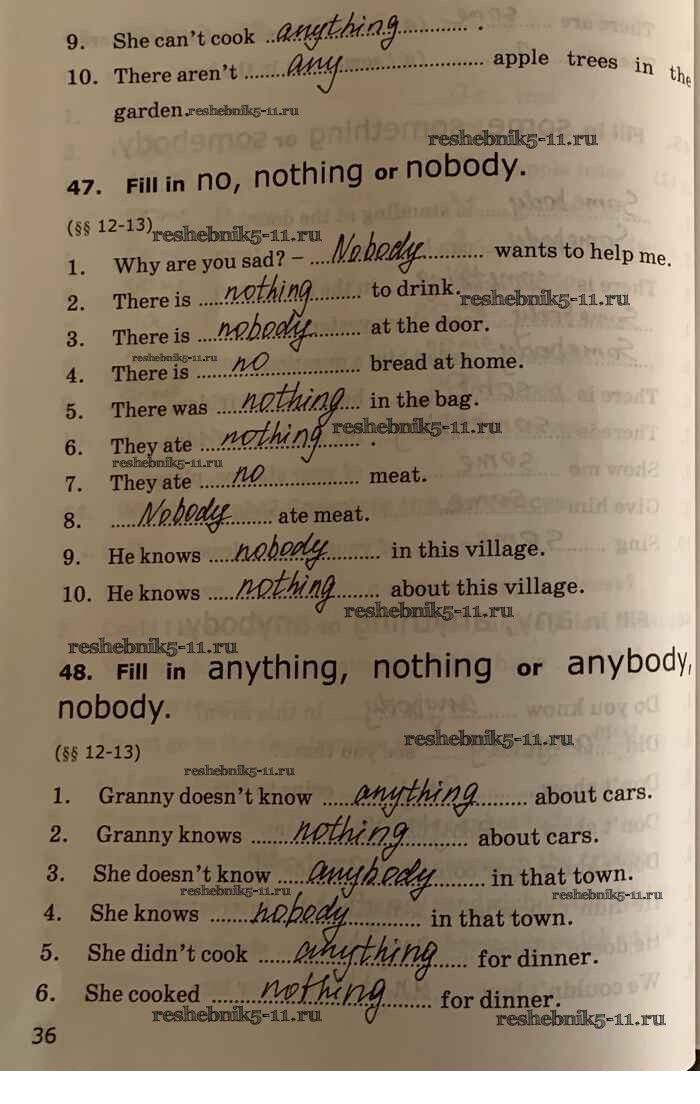 9. She can't cook ..anything.............. .
10. There aren't ........any............................ apple trees in the
garden. reshebnik5-11.ru
reshebnik5-11.ru
47. Fill in no, nothing or nobody.
(§§ 12-13) reshebnik5-11.ru
1. Why are you sad? – ....Nobody............ wants to help me.
2. There is .....nothing.......... to drink. reshebnik5-11.ru
3. There is ....nobody.......... at the door.
reshebnik5-11.ru
4. There is .......no.................. bread at home.
5. There was ....nothing.... in the bag.
reshebnik5-11.ru
6. They ate ....nothing....... .
reshebnik5-11.ru
7. They ate ......no.................. meat.
8. .....Nobody........ ate meat.
9. He knows ....nobody.......... in this village.
10. He knows .....nothing........ about this village.
reshebnik5-11.ru
reshebnik5-11.ru
48. Fill in anything, nothing or anybody,
nobody.
reshebnik5-11.ru
(§§ 12-13)
reshebnik5-11.ru
1. Granny doesn't know .....anything......... about cars.
2. Granny knows ........nothing............ about cars.
3. She doesn't know .....anybody......... in that town.
reshebnik5-11.ru
reshebnik5-11.ru
4. She knows .......nobody............. in that town.
5. She didn't cook ......anything..... for dinner.
6. She cooked ........nothing......... for dinner.
reshebnik5-11.ru
reshebnik5-11.ru
36